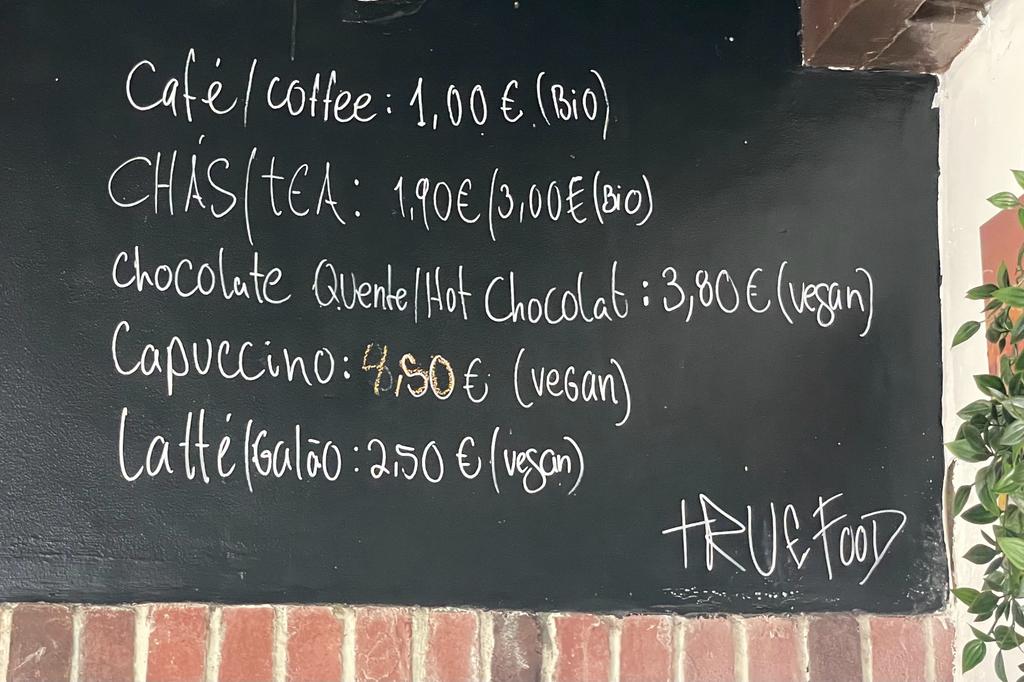 Café/coffee: 1,00 € (Bio)
CHÁS/tEA: 1,90€/3,00€(Bio)
chocolate Quente/Hot Chocolat: 3,80 € (vegan)
Capuccino: 4,50 € (vegan)
Latté/Galão: 2,50 € (vegan)
tRUE FOOD